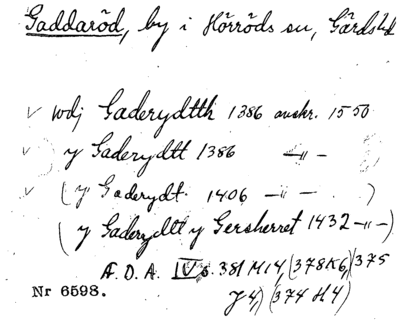 Gaddaröd, by i Hörröds sn, Gärds hd
v wdj Gaderydtth 1386 avskr. 1550
v y Gaderydtt 1386 –"–
v (y Gaderydt 1406 –"– )
(y Gaderydtt y Gersherret 1432 –"–)
Æ. D. A. IV s. 381 M 14, (378 K 6,) (375
J 4,) (374 H 4)
Nr 6598.